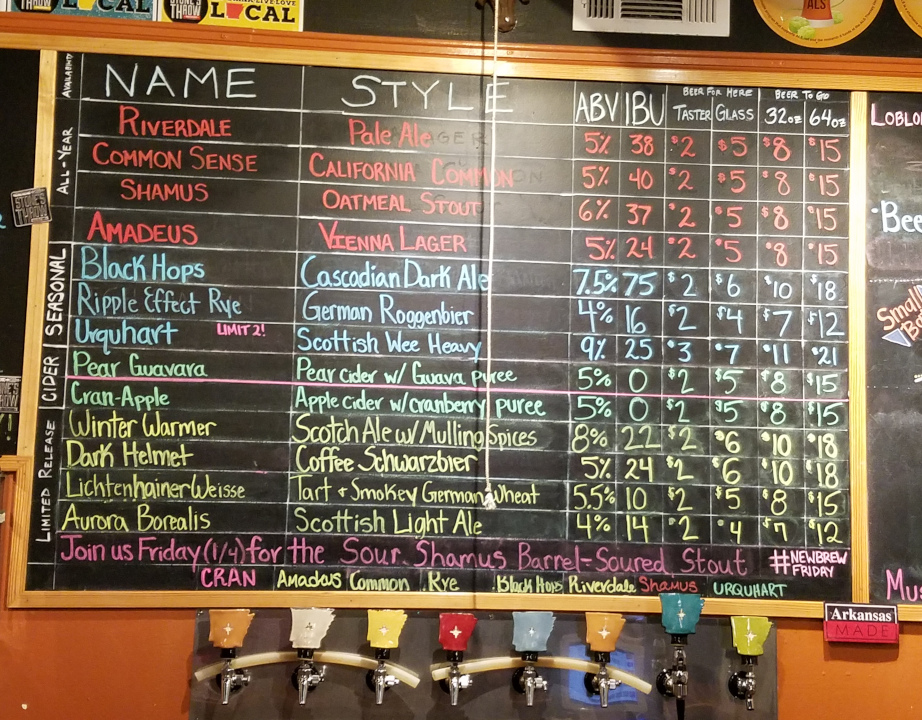 STONE'S THROW
LOCAL
STONE'S THROW
DRINK·LIVE·LOVE
LOCAL
ALS
NAME STYLE ABV IBU BEER FOR HERE BEER TO GO
TASTER GLASS 32oz 64oz
ALL-YEAR
RIVERDALE Pale Ale 5% 38 $2 $5 $8 $15
COMMON SENSE CALIFORNIA COMMON 5% 40 $2 $5 $8 $15
SHAMUS OATMEAL STOUT 6% 37 $2 $5 $8 $15
AMADEUS VIENNA LAGER 5% 24 $2 $5 $8 $15
SEASONAL
Black Hops Cascadian Dark Ale 7.5% 75 $2 $6 $10 $18
Ripple Effect Rye German Roggenbier 4% 16 $2 $4 $7 $12
Urquhart LIMIT 2! Scottish Wee Heavy 9% 25 $3 $7 $11 $21
CIDER
Pear Guavara Pear cider w/ Guava puree 5% 0 $2 $5 $8 $15
Cran-Apple Apple cider w/cranberry puree 5% 0 $2 $5 $8 $15
LIMITED RELEASE
Winter Warmer Scotch Ale w/ Mulling Spices 8% 22 $2 $6 $10 $18
Dark Helmet Coffee Schwarzbier 5% 24 $2 $6 $10 $18
LichtenhainerWeisse Tart + Smokey German Wheat 5.5% 10 $2 $5 $8 $15
Aurora Borealis Scottish Light Ale 4% 14 $2 $4 $7 $12
Join us Friday (1/4) for the Sour Shamus Barrel-Soured Stout #NEWBREW FRIDAY
CRAN Amadeus Common Rye Black Hops Riverdale Shamus URQUHART
STONE'S THROW
LOBLO
Bee
Small
Mus
Arkansas
MADE